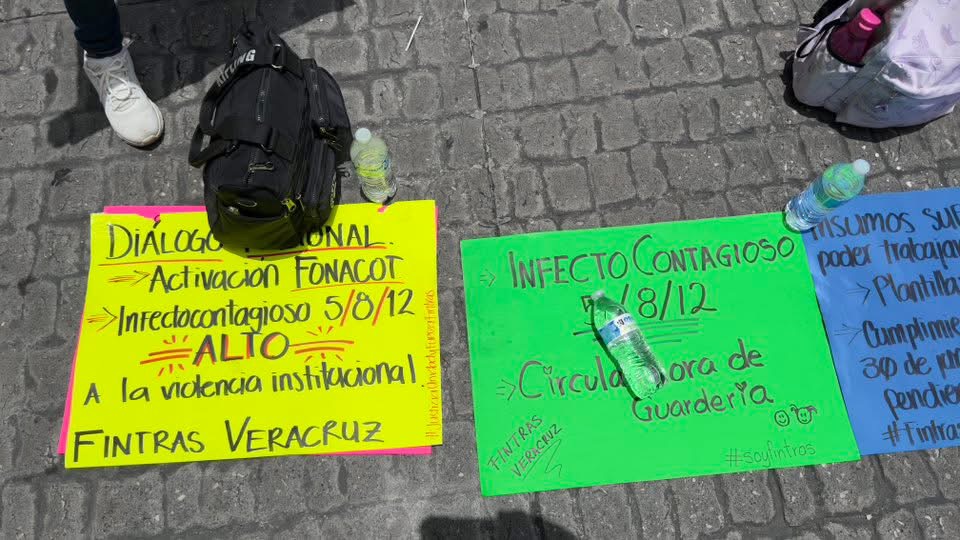 DIÁLOGO
→ Activación FONACOT
→ Infectocontagioso 5/8/12
ALTO
A la violencia institucional
FINTRAS VERACRUZ
→ INFECTO CONTAGIOSO
/8/12
→ Circula hora de
Guardería
FINTRAS
VERACRUZ
#soyfintras
INSUMOS
poder trabaja
→ Plantilla
→ Cumplimie
30 de
pendien
#Fintras